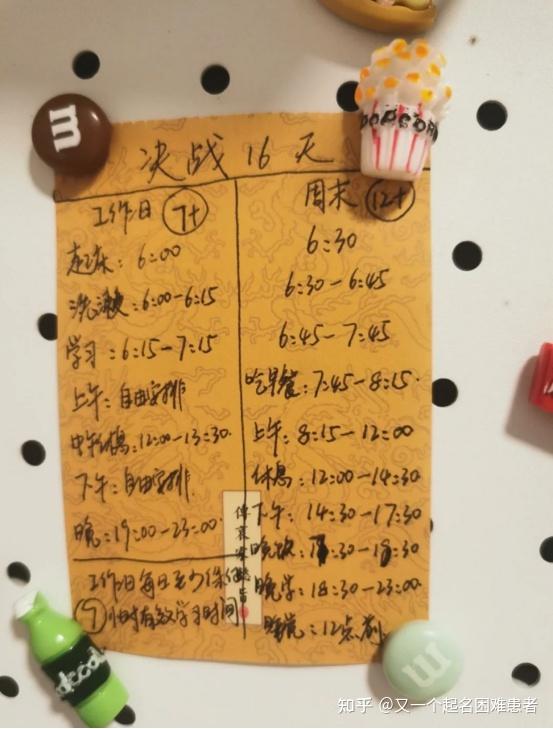 m
POPCORN
决战16天
工作日 7+
起床：6:00
洗漱：6:00-6:15
学习：6:15-7:15
上午：自由安排
中午休息：12:00-13:30.
下午：自由安排
晚：19:00-23:00
工作日每日至少保
7小时有效学习时间
周末 12+
6:30
6:30-6:45
6:45-7:45
吃早餐：7:45-8:15.
上午：8:15-12:00
休息：12:00-14:30
下午：14:30-17:30
晚学：18:30-23:00
睡觉：12点前
m
知乎 @又一个起名困难患者